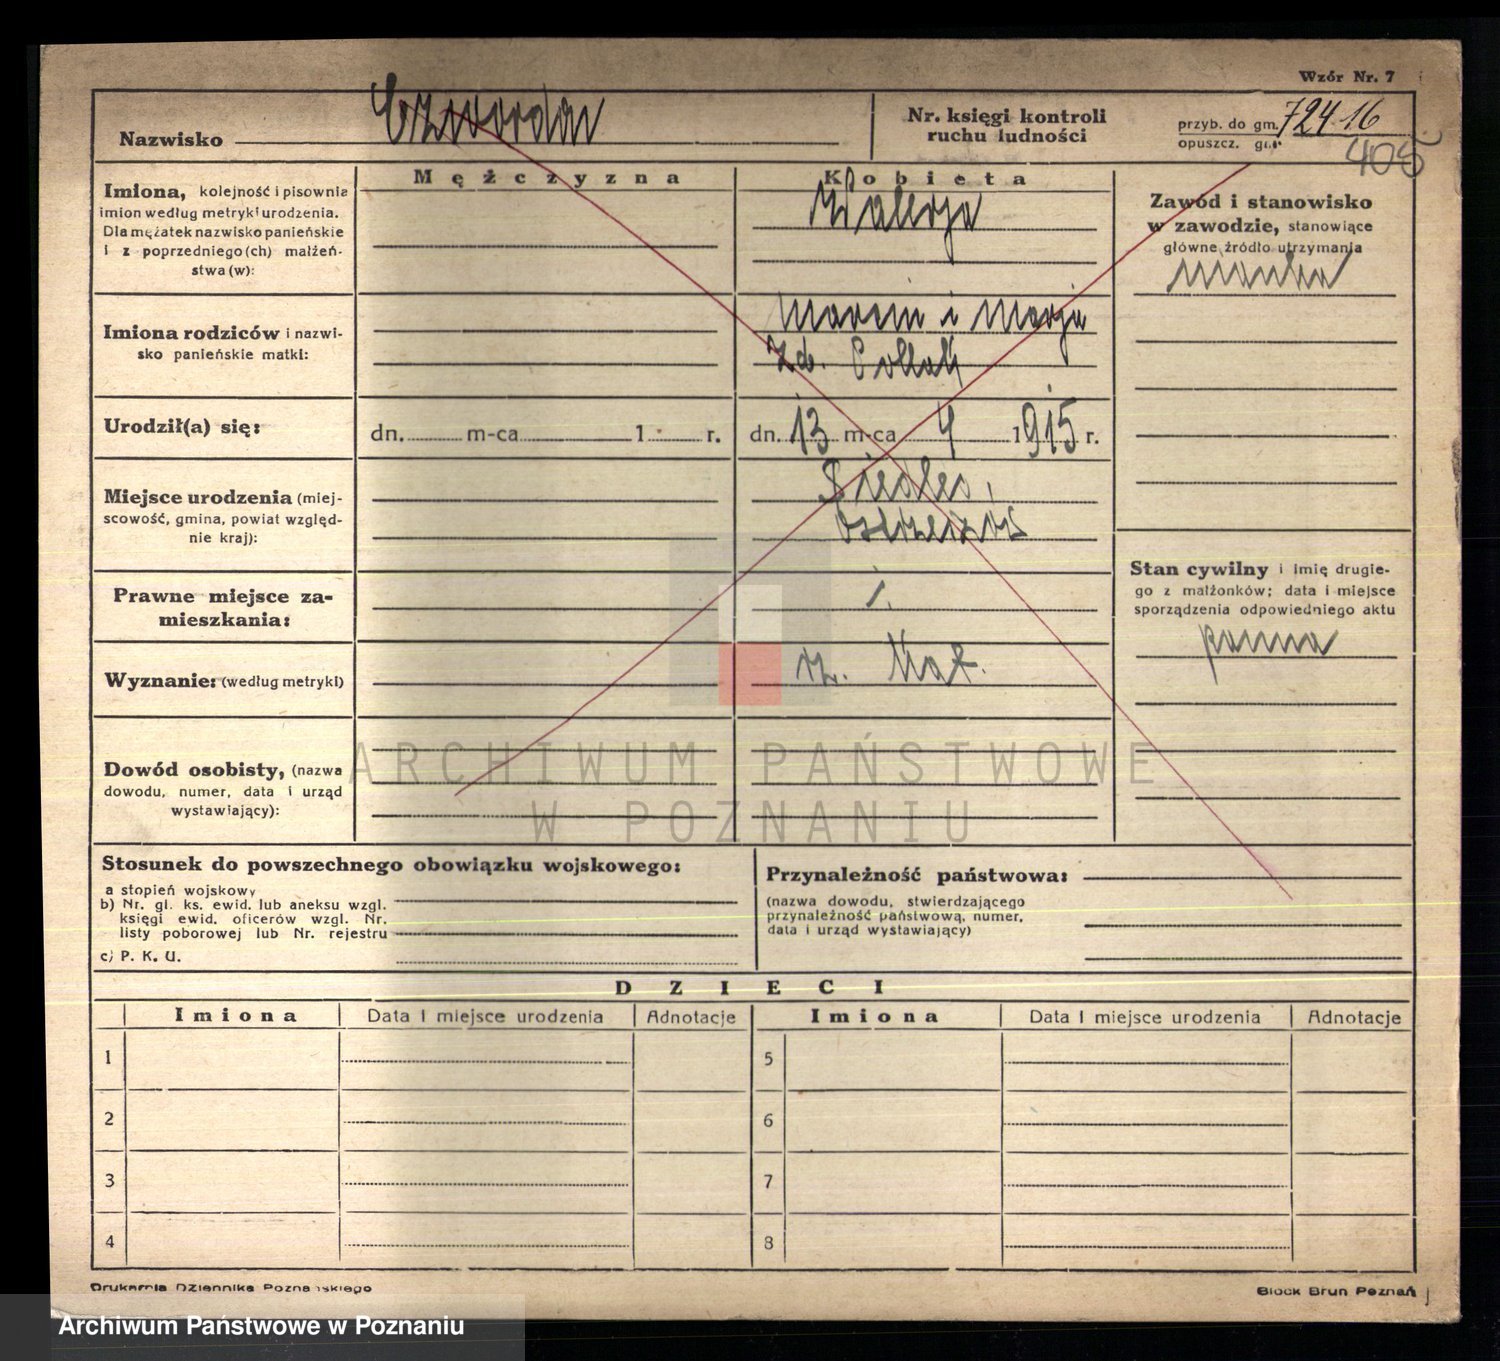 Wzór Nr. 7
Nazwisko Czwordon
Nr. księgi kontroli
ruchu ludności
przyb. do gm. 724 16
opuszcz. gm.
405
Imiona, kolejność i pisownia
imion według metryki urodzenia.
Dla mężatek nazwisko panieńskie
i z poprzedniego (ch) małżeń-
stwa (w):
Mężczyzna
Kobieta
Walerja
Zawód i stanowisko
w zawodzie, stanowiące
główne źródło utrzymania
Imiona rodziców i nazwi-
sko panieńskie matki:
Marcin i Marja
zd. Pollak
Urodził(a) się:
dn. m-ca 1 r.
dn. 13 m-ca 4 1915 r.
Miejsce urodzenia (miej-
scowość, gmina, powiat względ-
nie kraj):
Siedlec,
Stan cywilny i imię drugie-
go z małżonków; data i miejsce
sporządzenia odpowiedniego aktu
panna
Prawne miejsce za-
mieszkania:
Wyznanie: (według metryki)
rz. kat.
Dowód osobisty, (nazwa
dowodu, numer, data i urząd
wystawiający):
ARCHIWUM PAŃSTWOWE
W POZNANIU
Stosunek do powszechnego obowiązku wojskowego:
a stopień wojskowy
b) Nr. gł. ks. ewid. lub aneksu wzgl.
księgi ewid. oficerów wzgl. Nr.
listy poborowej lub Nr. rejestru
c) P. K. U.
Przynależność państwowa:
(nazwa dowodu, stwierdzającego
przynależność państwową, numer,
data i urząd wystawiający)
DZIECI
Imiona Data i miejsce urodzenia Adnotacje Imiona Data i miejsce urodzenia Adnotacje
1 5
2 6
3 7
4 8
Drukarnia Dziennika Poznańskiego
Block Brun Poznań
Archiwum Państwowe w Poznaniu